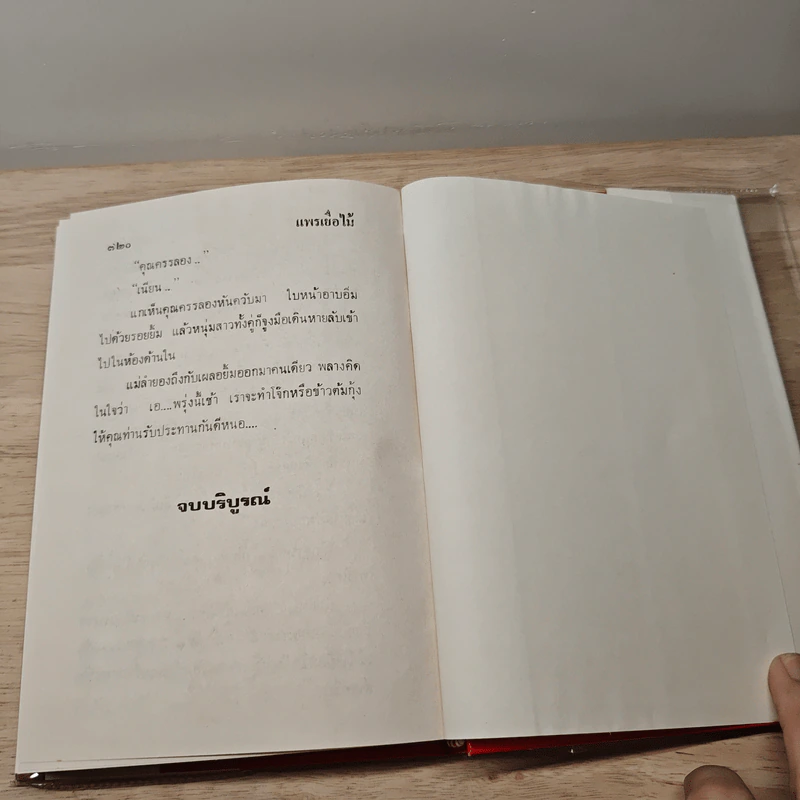 ๗๒๐
แพรเยื่อไม้
"คุณครรลอง .."
"เนียน .."
แกเห็นคุณครรลองหันควับมา ใบหน้าอาบอิ่ม
ไปด้วยรอยยิ้ม แล้วหนุ่มสาวทั้งคู่ก็จูงมือเดินหายลับเข้า
ไปในห้องด้านใน
แม่ลำยองถึงกับเผลอยิ้มออกมาคนเดียว พลางคิด
ในใจว่า เอ....พรุ่งนี้เช้า เราจะทำโจ๊กหรือข้าวต้มกุ้ง
ให้คุณท่านรับประทานกันดีหนอ....
จบบริบูรณ์